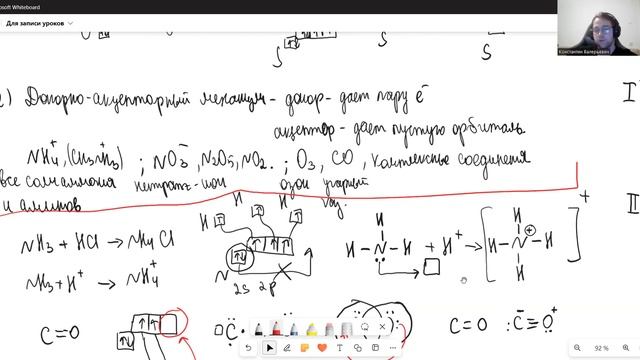 Microsoft Whiteboard
Для записи уроков
Константин Валерьевич
S
S
S
) Донорно-акцепторный механизм - донор - даёт пару ē
I
акцептор - даёт пустую орбиталь
NH₄⁺, (CH₃NH₃⁺) ; NO₃⁻, N₂O₅, NO₂. ; O₃, CO, комплексные соединения
все соли аммония нитрат-ион озон угарный
и аминов газ.
II
H H H
NH₃ + HCl → NH₄Cl
N 2s 2p
H H-N-H + H⁺ → [H H-N-H H]⁺
NH₃ + H⁺ → NH₄⁺
C=O
C
C=O :C̄≡O⁺
92 %